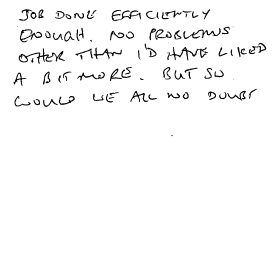 JOB DONE EFFICIENTLY
ENOUGH. NO PROBLEMS
OTHER THAN I'D HAVE LIKED
A BIT MORE. BUT SO
WOULD WE ALL NO DOUBT